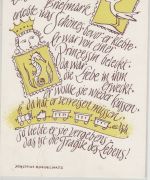 Briefmark
erlebte was Schönes, bevor er klebte.
Er war von einer
Prinzessin beleckt.
Da war
die Liebe in ihm
erweckt.
Er wollte sie wieder küssen,
da hat er verreisen müssen.
So liebte er sie vergebens.
Das ist die Tragik des Lebens!
JOACHIM RINGELNATZ